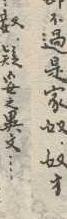 不過是家奴．奴才
疑每之異文……